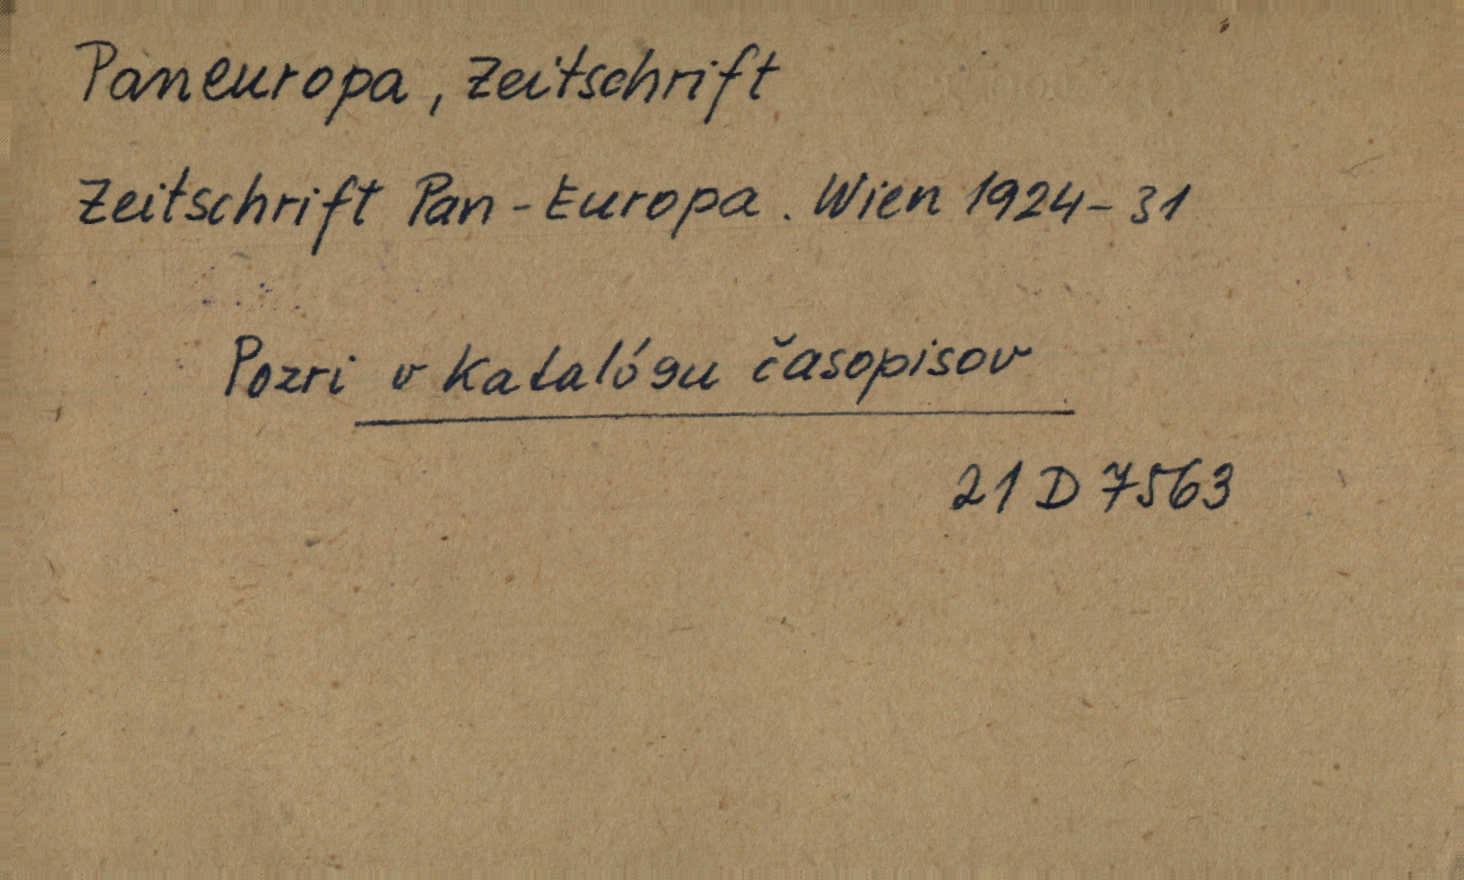 Paneuropa, Zeitschrift
Zeitschrift Pan-Europa. Wien 1924-31
Pozri v katalógu časopisov
21 D 7563